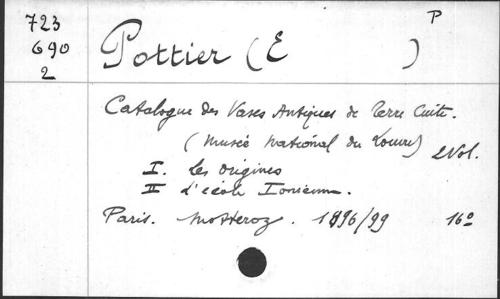 723
690
2
P
Pottier (E )
Catalogue des Vases Antiques de Terre Cuite.
(Musée National du Louvre) 2 Vol.
I. Les origines
II L'école Ionienne.
Paris. Motteroz. 1896/99 16°